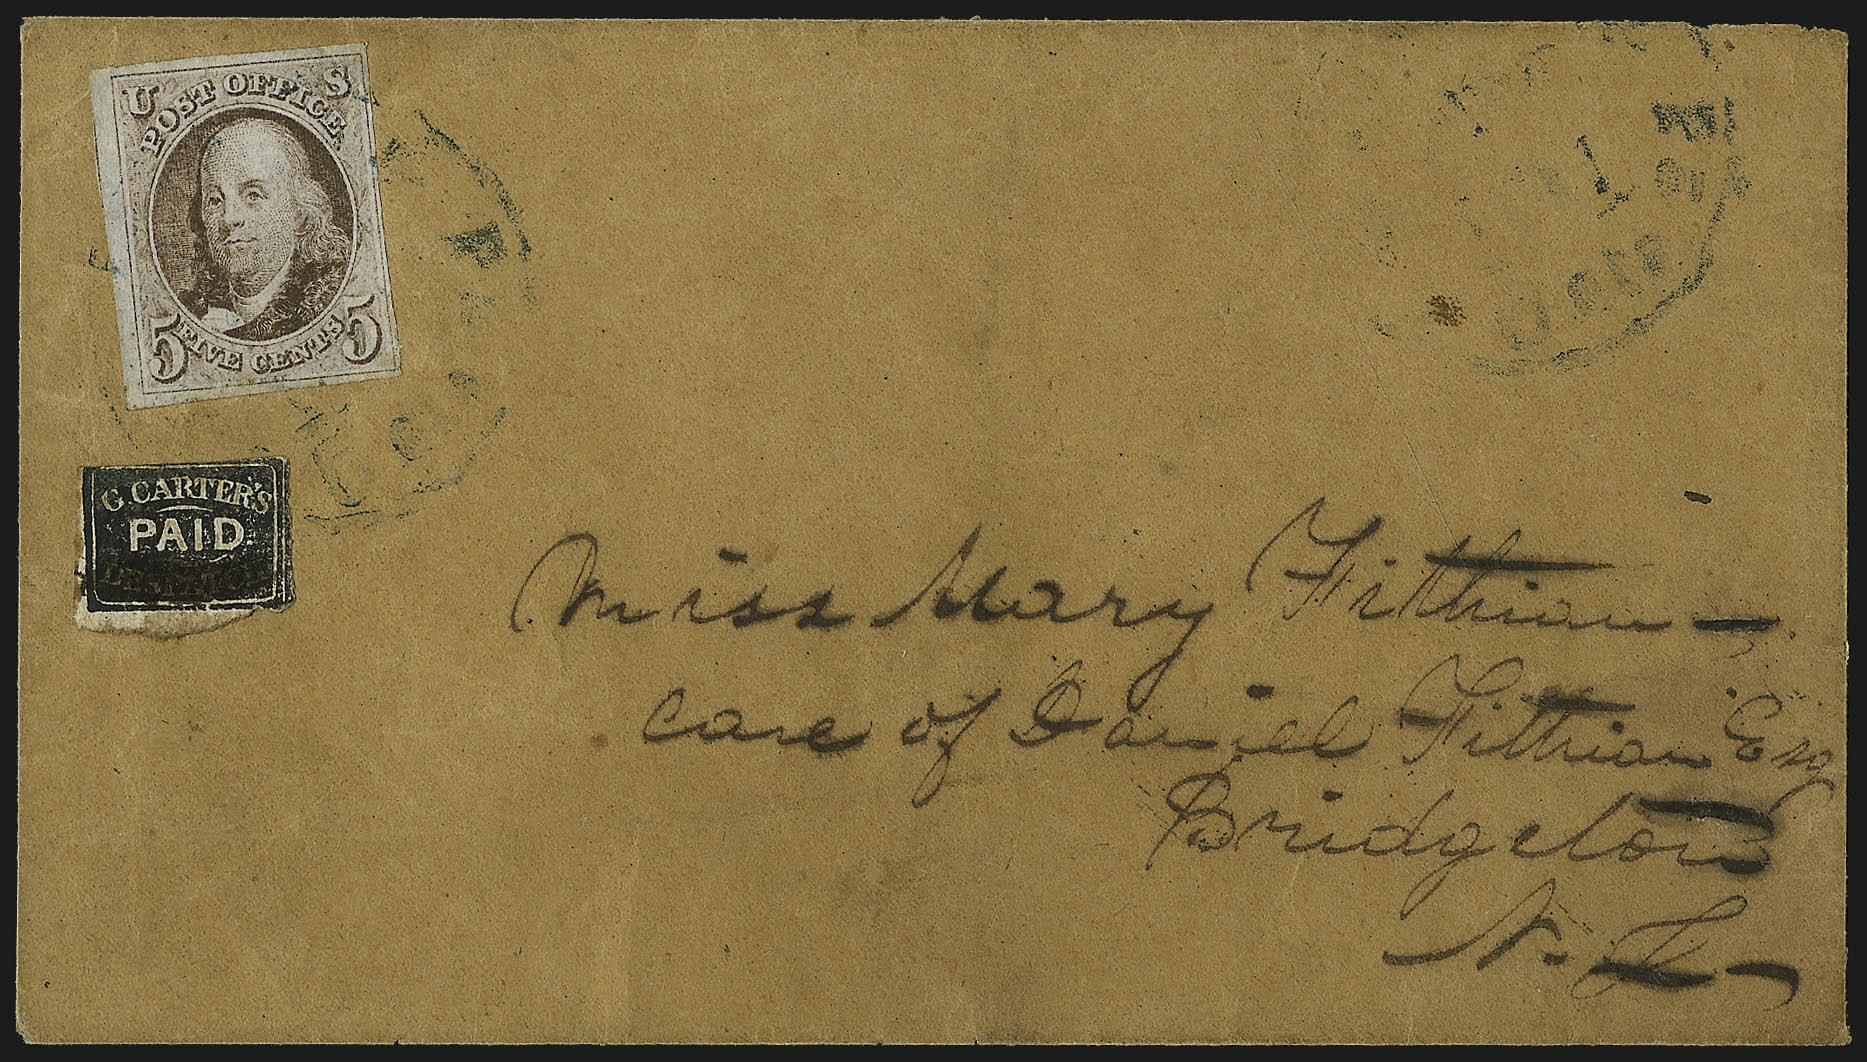 U S
POST OFFICE
5 FIVE CENTS 5
G. CARTER'S
PAID
DESPATCH
Miss Mary Fithian
care of Daniel Fithian Esq
Bridgeton
N. J.